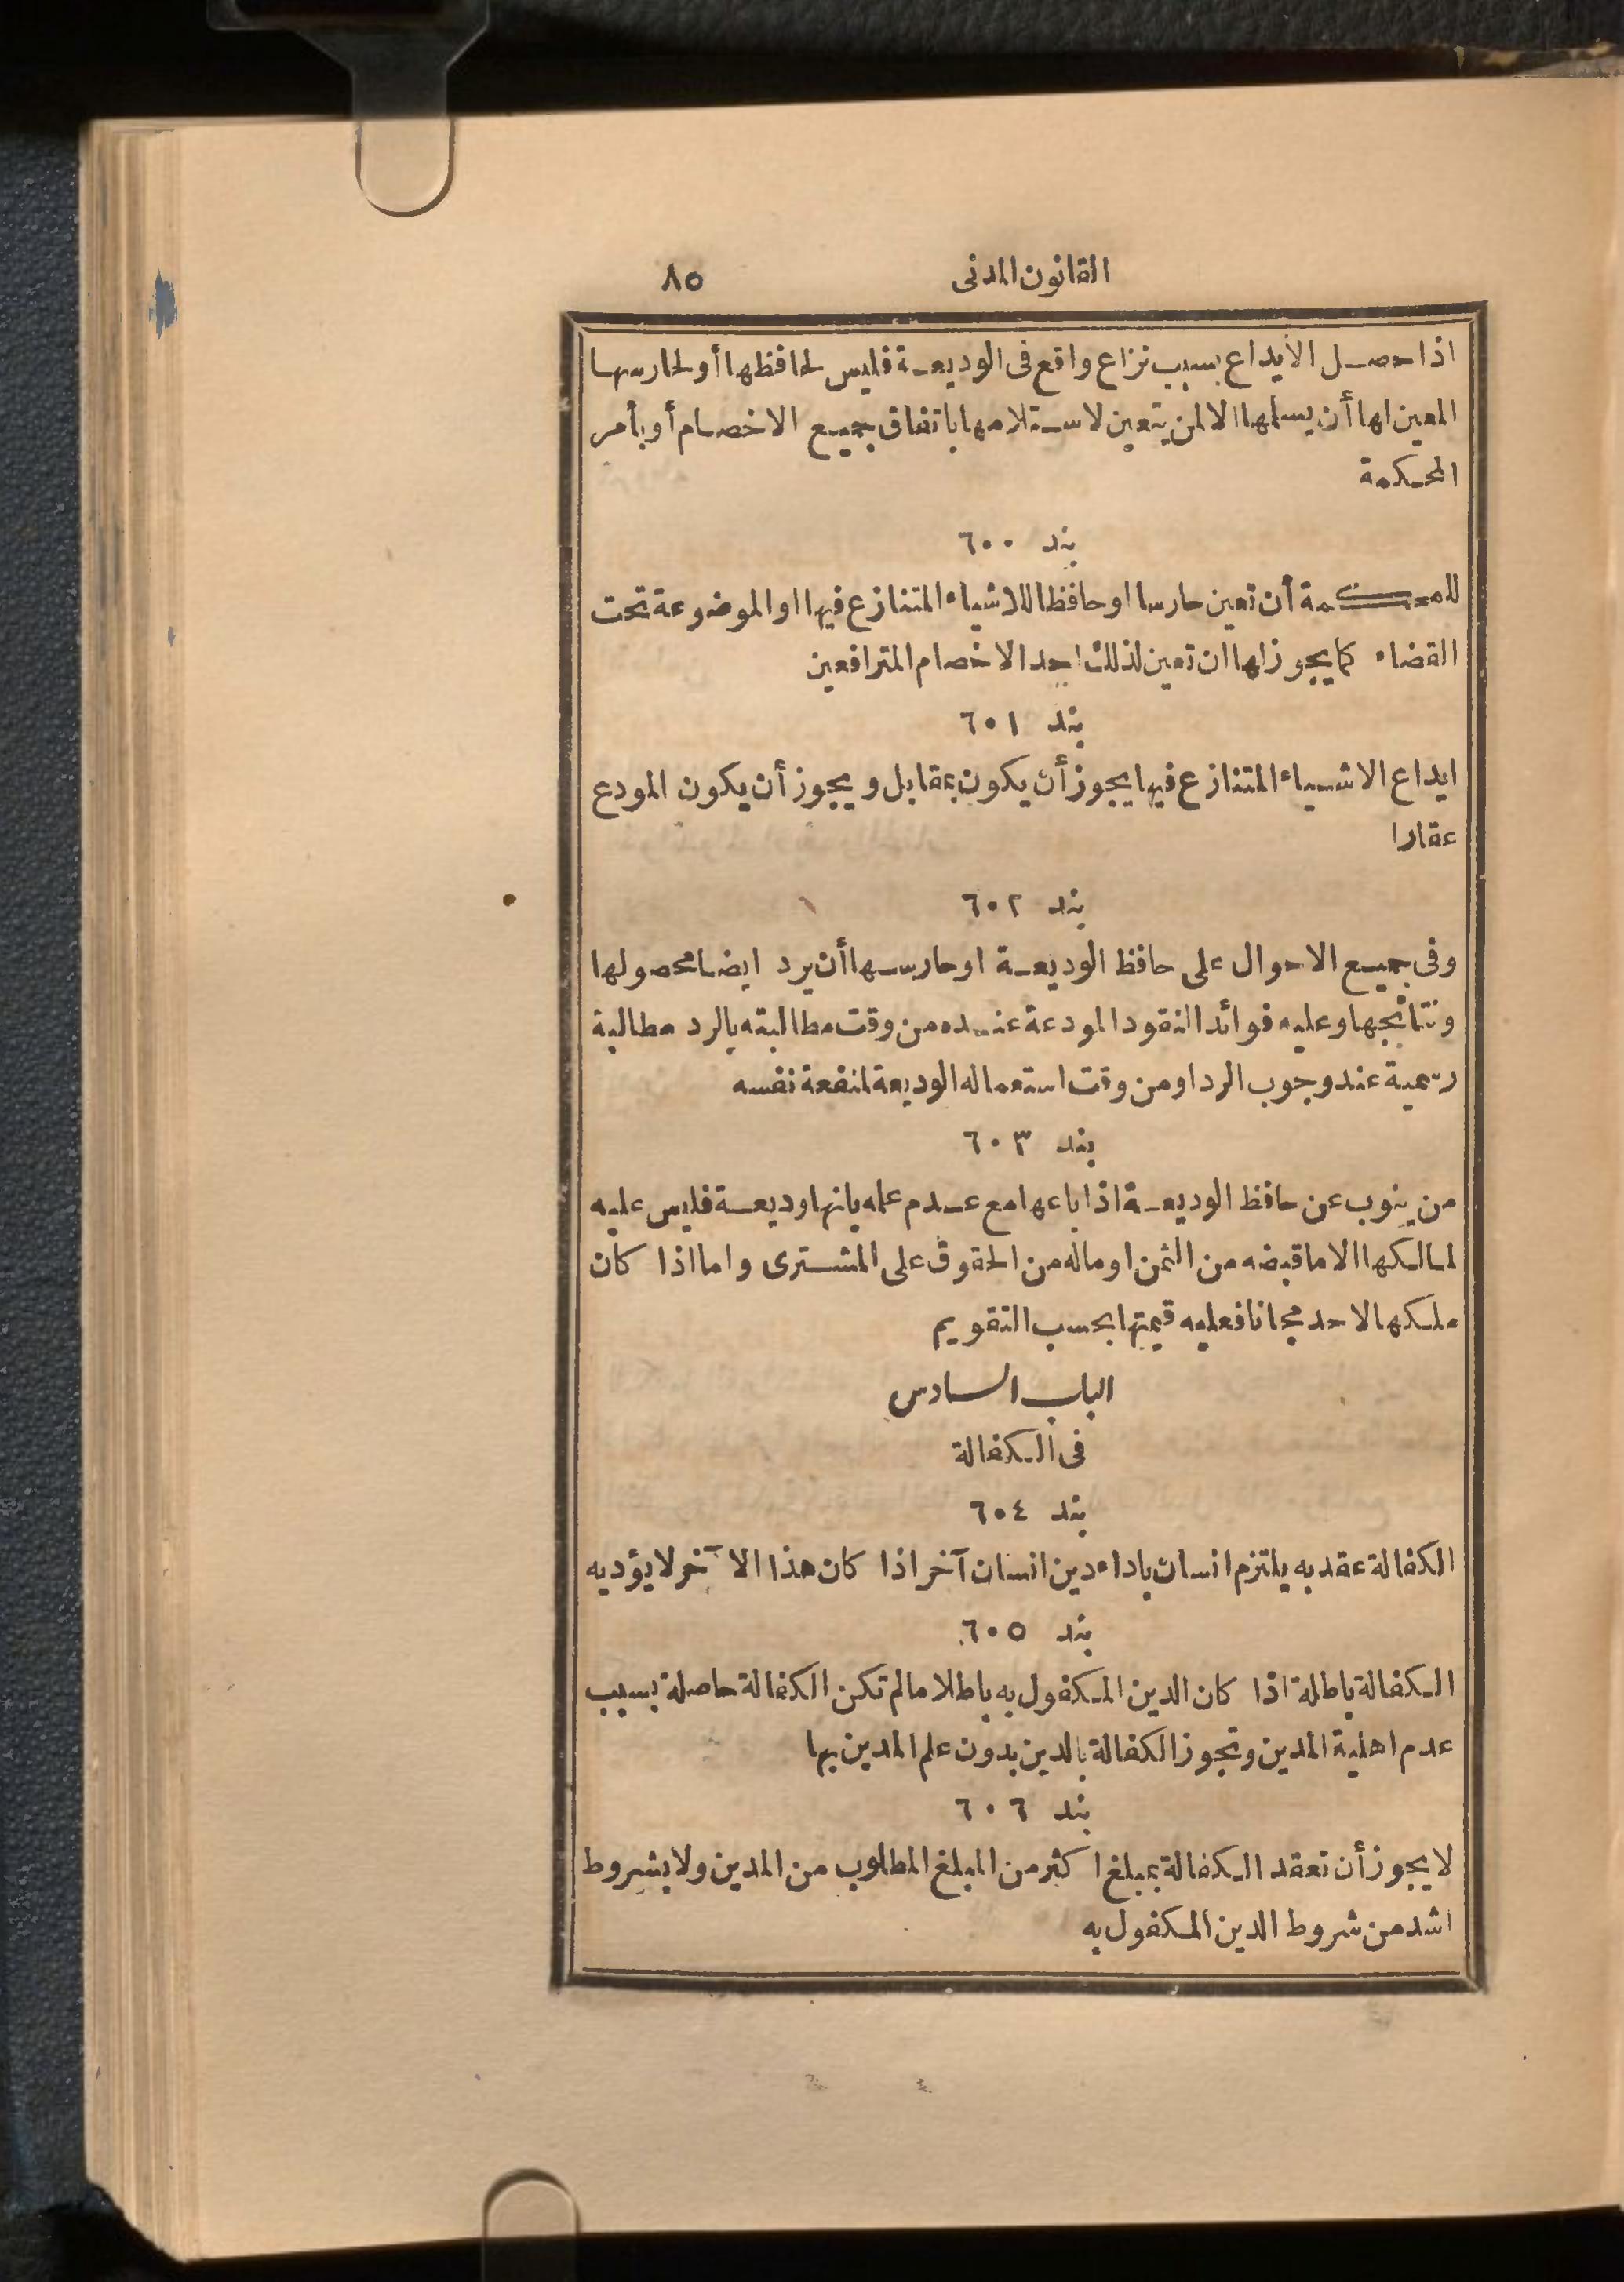 القانون المدنى ٨٥
اذا حصل الايداع بسبب نزاع واقع فى الوديعة فليس لحافظها أو لحارسها
المعين لها أن يسلمها الا لمن يتعين لاستلامها باتفاق جميع الاخصام أو بأمر
المحكمة
بند ٦٠٠
للمحكمة أن تعين حارسا او حافظا للاشياء المتنازع فيها او الموضوعة تحت
القضاء كما يجوز لها ان تعين لذلك احد الاخصام المترافعين
بند ٦٠١
ايداع الاشياء المتنازع فيها يجوز أن يكون بمقابل ويجوز أن يكون المودع
عقارا
بند ٦٠٢
وفى جميع الاحوال على حافظ الوديعة او حارسها أن يرد ايضا محصولها
ونتائجها وعليه فوائد النقود المودعة عنده من وقت مطالبته بالرد مطالبة
رسمية عند وجوب الرد او من وقت استعماله الوديعة لمنفعة نفسه
بند ٦٠٣
من ينوب عن حافظ الوديعة اذا باعها مع عدم علمه بانها وديعة فليس عليه
لمالكها الا ما قبضه من الثمن او ماله من الحقوق على المشترى واما اذا كان
ملكها لاحد مجانا فعليه قيمتها بحسب التقويم
الباب السادس
فى الكفالة
بند ٦٠٤
الكفالة عقد به يلتزم انسان باداء دين انسان آخر اذا كان هذا الآخر لا يؤديه
بند ٦٠٥
الكفالة باطلة اذا كان الدين المكفول به باطلا ما لم تكن الكفالة حاصلة بسبب
عدم اهلية المدين وتجوز الكفالة بالدين بدون علم المدين بها
بند ٦٠٦
لا يجوز أن تعقد الكفالة بمبلغ اكثر من المبلغ المطلوب من المدين ولا بشروط
اشد من شروط الدين المكفول به